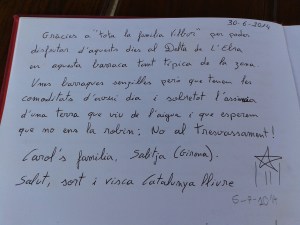 30-6-2014
Gràcies a "tota la família Elbri" per poder
disfrutar d'aquests dies al Delta de l'Ebre
en aquesta barraca tant típica de la zona.
Unes barraques senzilles però que tenen les
comoditats d'avui dia i sobretot l'essència
d'una terra que viu de l'aigua i que esperem
que no ens la robin: No al Transvassament!
Carol's família, Salitja (Girona).
Salut, sort i visca Catalunya lliure
6-7-2014